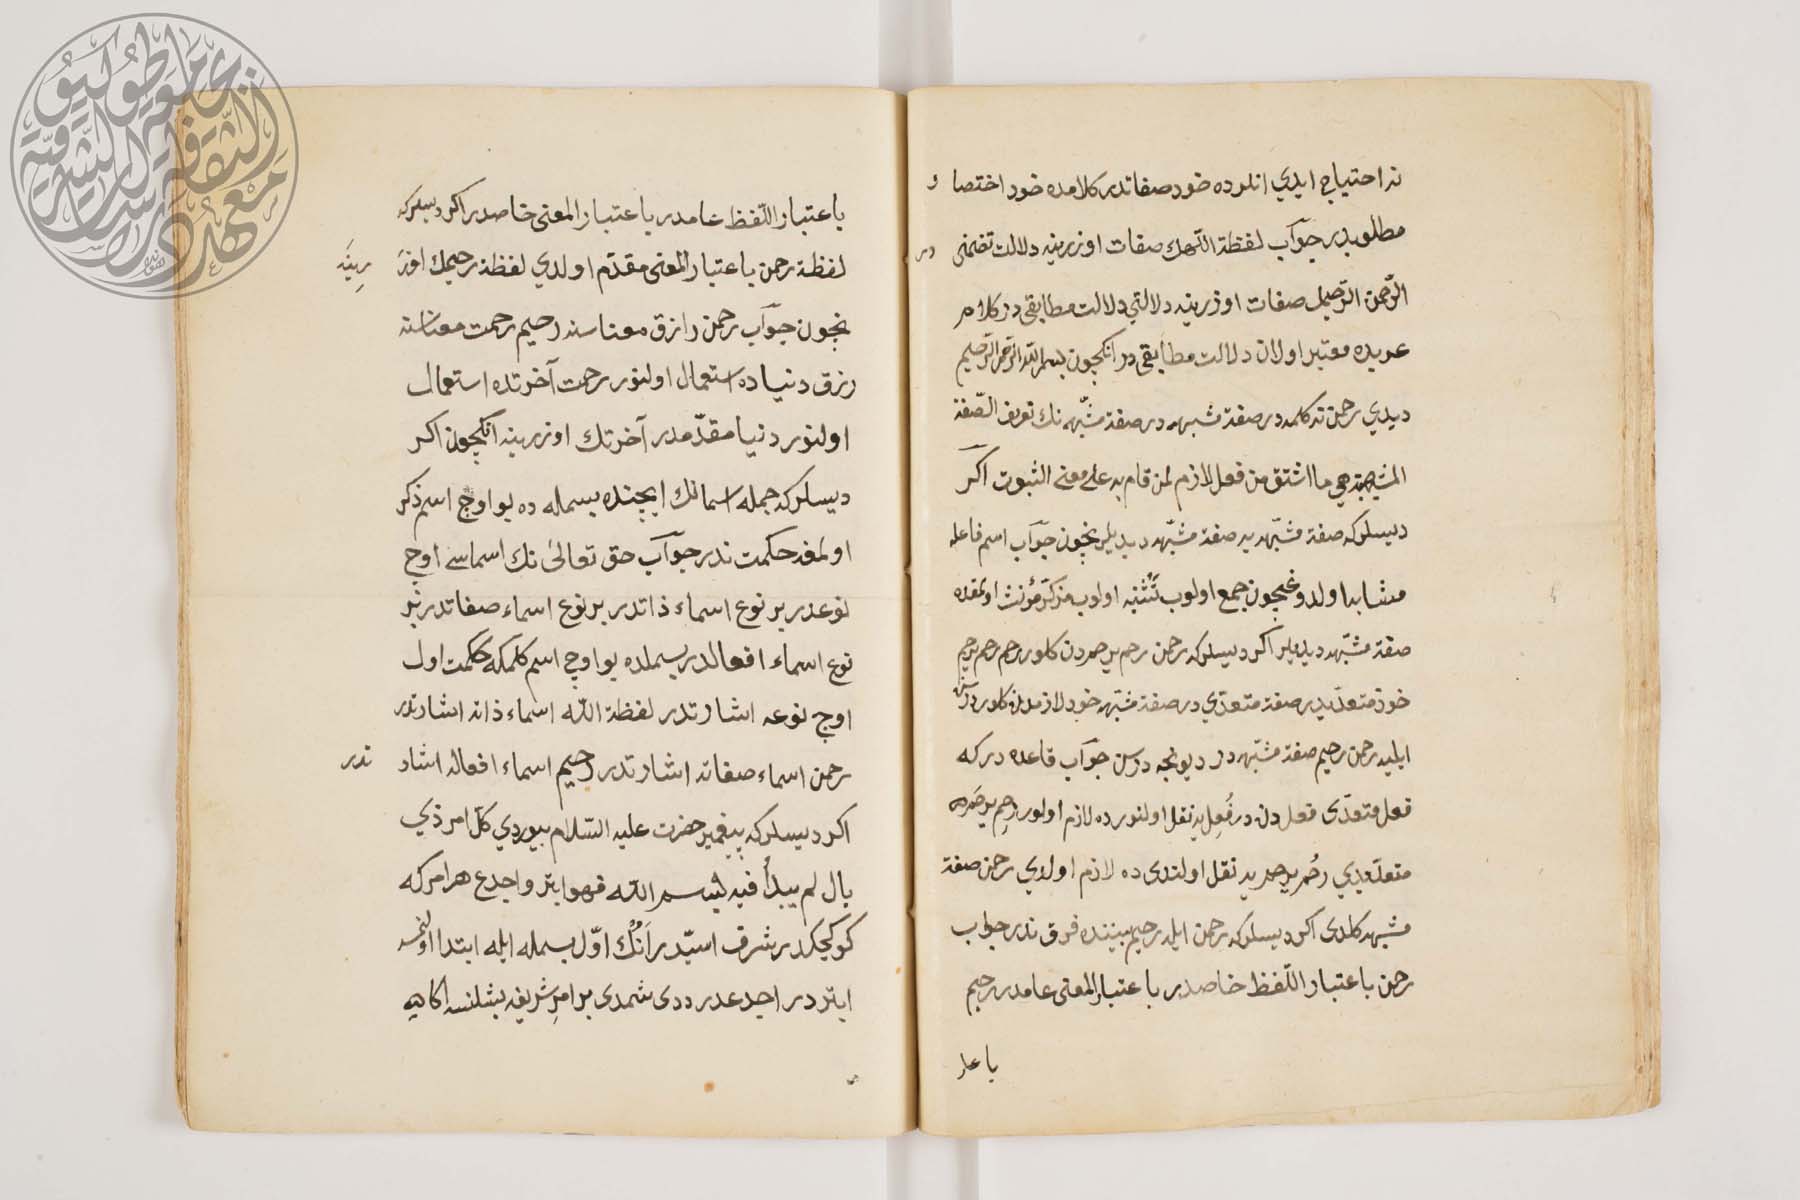 نه احتياجي ايدي انلرده خود صفاتدر كلامده خود اختصار
مطلوبدر جواب لفظة اللّهك صفات اوزرينه دلالت تضمنى در
الرّحمن الرّحيمك صفات اوزرينه دلالتي دلالت مطابقى در كلام
عربده معتبر اولان دلالت مطابقى در انكچون بسم الله الرّحمن الرّحيم
ديدي رحمن نه كلمه در صفة مشبهه در صفة مشبّهه نك تعريف الصّفة
المشبهة هي ما اشتق من فعل لازم لمن قام به على معنى الثبوت اكر
ديسلر كه صفة مشبّهه يه صفة مشبّهه ديديلر نچون جواب اسم فاعله
مشابه اولدوغيچون جمع اولوب تَثْنيه اولوب مذكّر مؤنث اولمقده
صفة مشبّهه ديديلر اكر ديسلر كه رحمن رحم يرحمدن كلور رحم يرحم
خود متعدّيدر صفة متعدّي در صفة مشبّهه خود لازمدن كلور
ايله رحمن رحيم صفة مشبّهه در ديو نجه دورسن جواب قاعده در كه
فعل متعدّى فعل دن در فَعُل يه نقل اولنور ده لازم اولور رحم يرحم
متعدّيدي رحُم يرحم يه نقل اولندى ده لازم اولدي رحمن صفة
مشبهه كلدى اكر ديسلر كه رحمن ايله رحيم بيننده فرق ندر جواب
رحمن باعتبار اللّفظ خاصدر باعتبار المعنى عامدر رحيم
باعتبار اللّفظ عامدر باعتبار المعنى خاصدر اكر ديسلر كه
لفظة رحمن باعتبار المعنى مقدّم اولدي لفظة رحيمك اوزرينه
نچون جواب رحمن رازق معناسنه رحيم رحمت معناسنه
رزق دنياده استعمال اولنور رحمت آخرتده استعمال
اولنور دنيا مقدّمدر آخرتك اوزرينه انكچون اكر
ديسلر كه جمله اسمانك ايچنده بسمله ده بو اوچ اسم ذكر
اولمغه حكمت ندر جواب حق تعالى نك اسماسى اوچ
نوعدر بر نوع اسماء ذاتدر بر نوع اسماء صفاتدر بر
نوع اسماء افعالدر بسملده بو اوچ اسم كلمكه حكمت اول
اوچ نوعه اشارتدر لفظة اللّه اسماء ذاته اشارتدر
رحمن اسماء صفاته اشارتدر رحيم اسماء افعاله اشارتدر
اكر ديسلر كه پيغمبر حضرت عليه السّلام بيوردي كلّ امر ذي
بال لم يبدأ فيه ببسم اللّه فهو ابتر واجدع هر امر كه
كوكچكدر شرف اسيّدر اَنُكْ اوّل بسمله ايله ابتدا اولنمسه
ابتردر اجدعدر ددى شمدى بر امرِ شريفه بشلنسه اكا